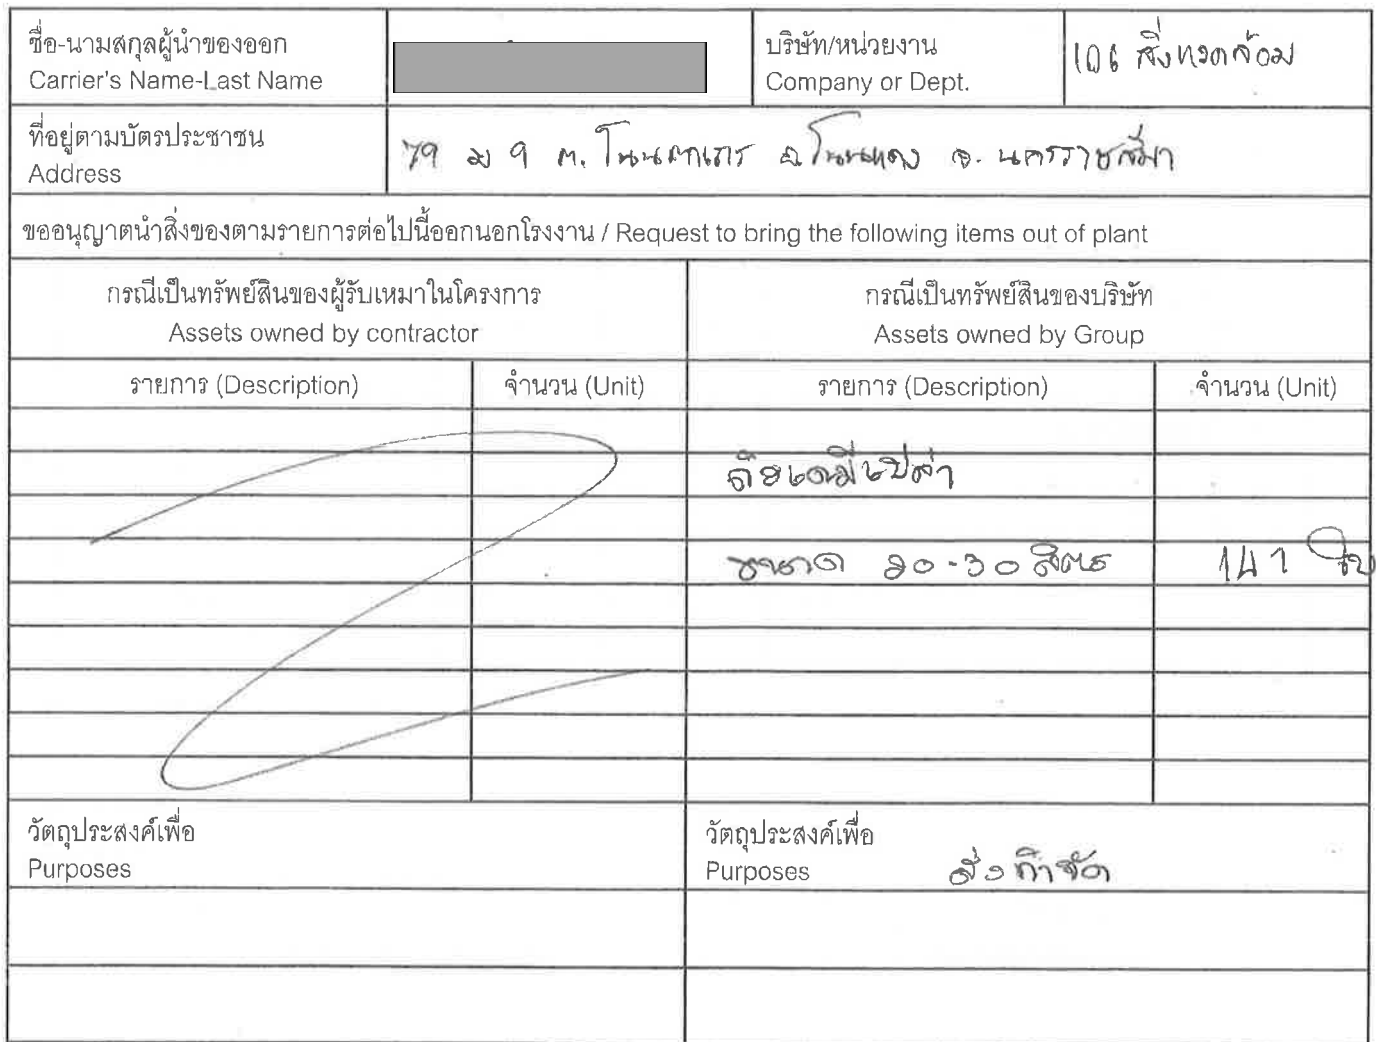 ชื่อ-นามสกุลผู้นำของออก
Carrier's Name-Last Name
บริษัท/หน่วยงาน
Company or Dept.
106 สิ่งแวดล้อม
ที่อยู่ตามบัตรประชาชน
Address
79 ม 9 ต. โนนตาเถร อ.โนนแดง จ. นครราชสีมา
ขออนุญาตนำสิ่งของตามรายการต่อไปนี้ออกนอกโรงงาน / Request to bring the following items out of plant
กรณีเป็นทรัพย์สินของผู้รับเหมาในโครงการ
Assets owned by contractor
กรณีเป็นทรัพย์สินของบริษัท
Assets owned by Group
รายการ (Description)
จำนวน (Unit)
รายการ (Description)
จำนวน (Unit)
ถังเคมีเปล่า
ขนาด 20-30 ลิตร
141 ใบ
วัตถุประสงค์เพื่อ
Purposes
วัตถุประสงค์เพื่อ
Purposes
ส่งกำจัด